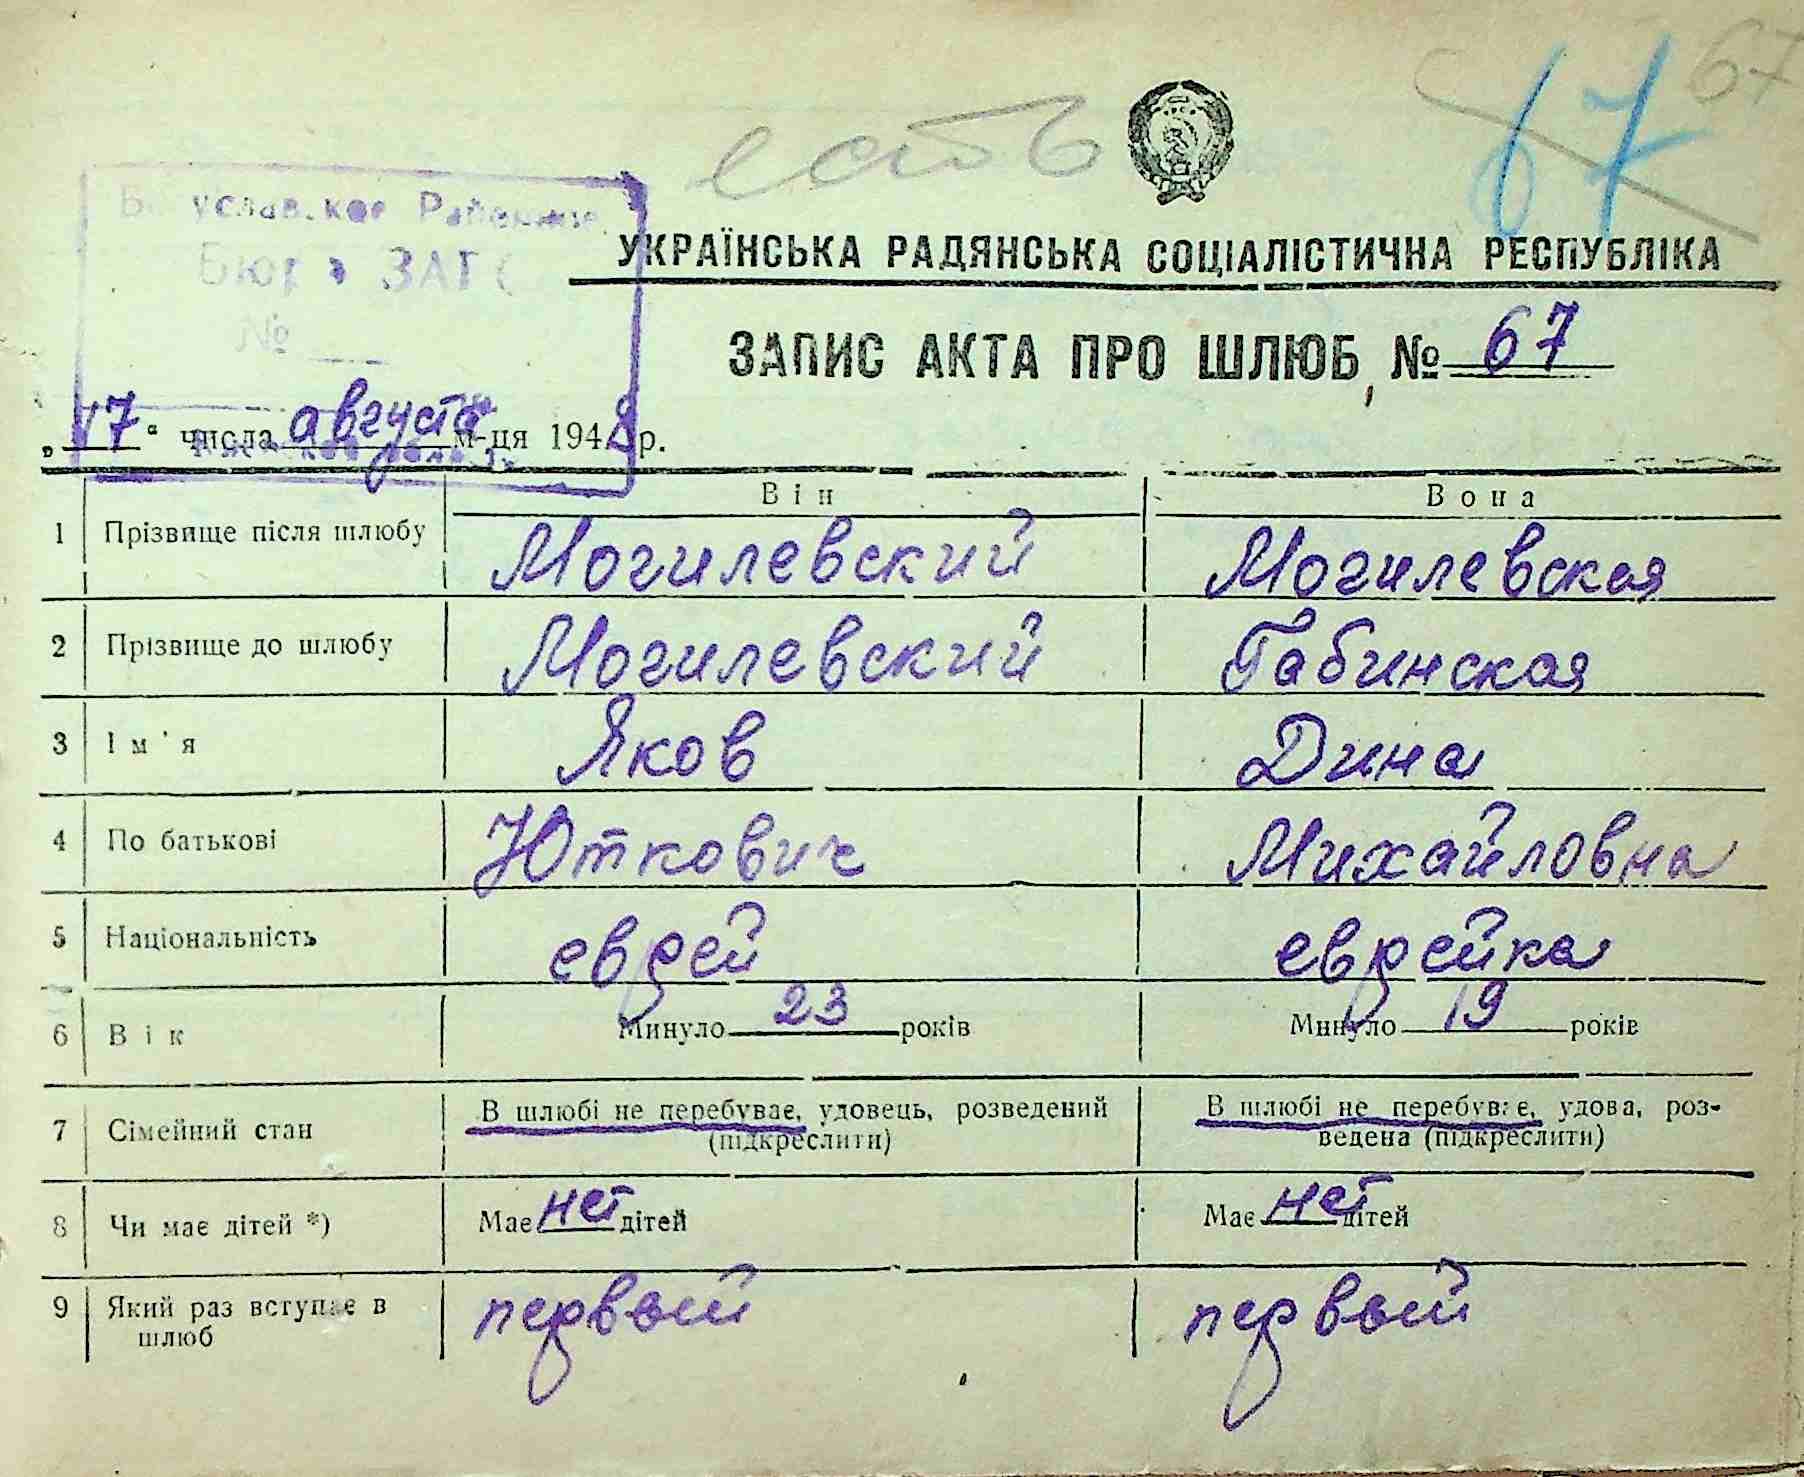 67
есть
67
Богуславское Районное
Бюро ЗАГС
№
УКРАЇНСЬКА РАДЯНСЬКА СОЦІАЛІСТИЧНА РЕСПУБЛІКА
ЗАПИС АКТА ПРО ШЛЮБ № 67
„17“ числа августа м-ця 1948 р.
Він Вона
1 Прізвище після шлюбу Могилевский Могилевская
2 Прізвище до шлюбу Могилевский Габинская
3 Ім'я Яков Дина
4 По батькові Юткович Михайловна
5 Національність еврей еврейка
6 Вік Минуло 23 років Минуло 19 років
7 Сімейний стан В шлюбі не перебуває, удовець, розведений В шлюбі не перебуває, удова, роз-
(підкреслити) ведена (підкреслити)
8 Чи має дітей *) Має нет дітей Має нет дітей
9 Який раз вступає в первый первый
шлюб